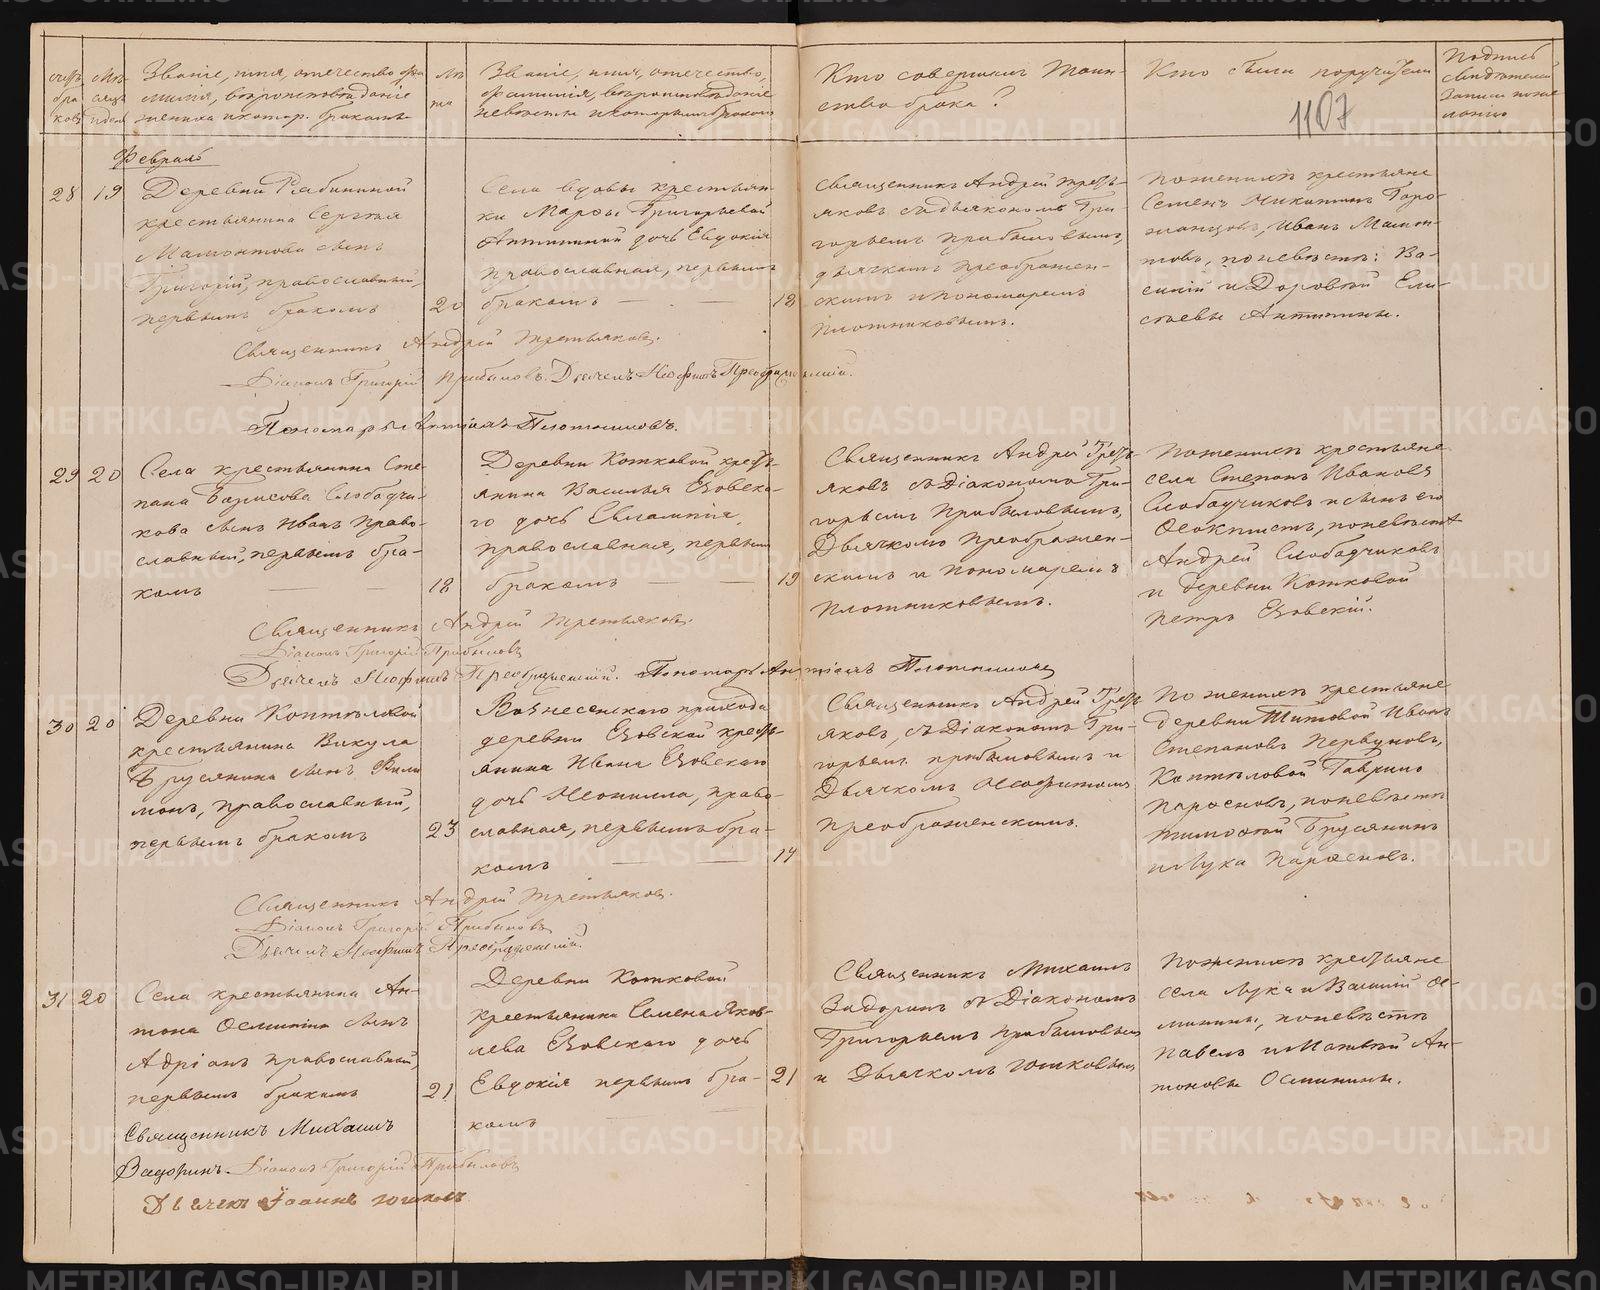 счетъ браковъ
Мѣсяцъ и день
Званіе, имя, отечество, фамилія, вѣроисповѣданіе жениха и котор. бракомъ
Лѣта
Званіе, имя, отечество, фамилія, вѣроисповѣданіе невѣсты и которымъ бракомъ
Кто совершалъ Таинство брака?
Кто были поручители
Подпись свидѣтелей записи по желанію
1107
Февраль
28 19
Деревни Рябининой
крестьянина Сергѣя
Мамонтова сынъ
Григорій, православный,
первымъ бракомъ
20
Села вдовы крестьян-
ки Марѳы Григорьевой
Антипиной дочь Евдокія
православная, первымъ
бракомъ
18
Священникъ Андрей Треть-
яковъ съ діакономъ Гри-
горьемъ Прибыловымъ,
дьячкомъ Преображен-
скимъ и пономаремъ
Плотниковымъ.
По женихѣ крестьяне
Семенъ Никитинъ Горо-
жанцовъ, Иванъ Мамон-
товъ, по невѣстѣ: Ва-
силій и Дороѳей Ели-
сѣевы Антипины.
Священникъ Андрей Третьяковъ.
Діаконъ Григорій Прибыловъ. Дьячекъ Неофитъ Преображенскій.
Пономарь Плотниковъ.
29 20
Села крестьянина Сте-
пана Борисова Слободчи-
кова сынъ Иванъ право-
славный, первымъ бра-
комъ
18
Деревни Котковой кресть-
янина Василья Ѣзовска-
го дочь Евлампія,
православная, первымъ
бракомъ
19
Священникъ Андрей Треть-
яковъ съ Діакономъ Гри-
горьемъ Прибыловымъ,
Дьячкомъ Преображен-
скимъ и Пономаремъ
Плотниковымъ.
По женихѣ крестьяне
села Степанъ Ивановъ
Слободчиковъ и сынъ его
Ѳеоктистъ, по невѣстѣ
Андрей Слободчиковъ
и деревни Котковой
Петръ Ѣзовскій.
Священникъ Андрей Третьяковъ.
Діаконъ Григорій Прибыловъ
Дьячекъ Неофитъ Преображенскій. Пономарь Плотниковъ
30 20
Деревни Коптѣловой
крестьянина Викула
Брусянина сынъ Фили
монъ, православный,
первымъ бракомъ
23
Вознесенскаго прихода
деревни Ѣзовской кресть-
янина Ивана Ѣзовскаго
дочь Неонилла, право-
славная, первымъ бра-
комъ
17
Священникъ Андрей Треть
яковъ, съ Діакономъ Гри-
горьемъ Прибыловымъ и
Дьячкомъ Неофитомъ
Преображенскимъ.
По женихѣ крестьяне
деревни Титовой Иванъ
Степановъ Первуновъ,
Коптѣловой Гаврило
Парѳеновъ, по невѣстѣ
Тимоѳей Брусянинъ
и Лука Парѳеновъ.
Священникъ Андрей Третьяковъ.
Діаконъ Григорій Прибыловъ
Дьячекъ Неофитъ Преображенскій.
31 20
Села крестьянина Ан-
тона Осминина сынъ
Адріанъ православный,
первымъ бракомъ
21
Деревни Котковой
крестьянина Семена Яков-
лева Ѣзовскаго дочь
Евдокія первымъ бра-
комъ
21
Священникъ Михаилъ
Задоринъ съ Діакономъ
Григорьемъ Прибыловымъ
и Дьячкомъ Юшковымъ
По женихѣ крестьяне
села Лука и Василій Ос-
минины, по невѣстѣ
Павелъ и Матвѣй Ан-
тоновы Осминины.
Священникъ Михаилъ
Задоринъ. Діаконъ Григорій Прибыловъ
Дьячекъ Іоаннъ Юшковъ
METRIKI.GASO-URAL.RU